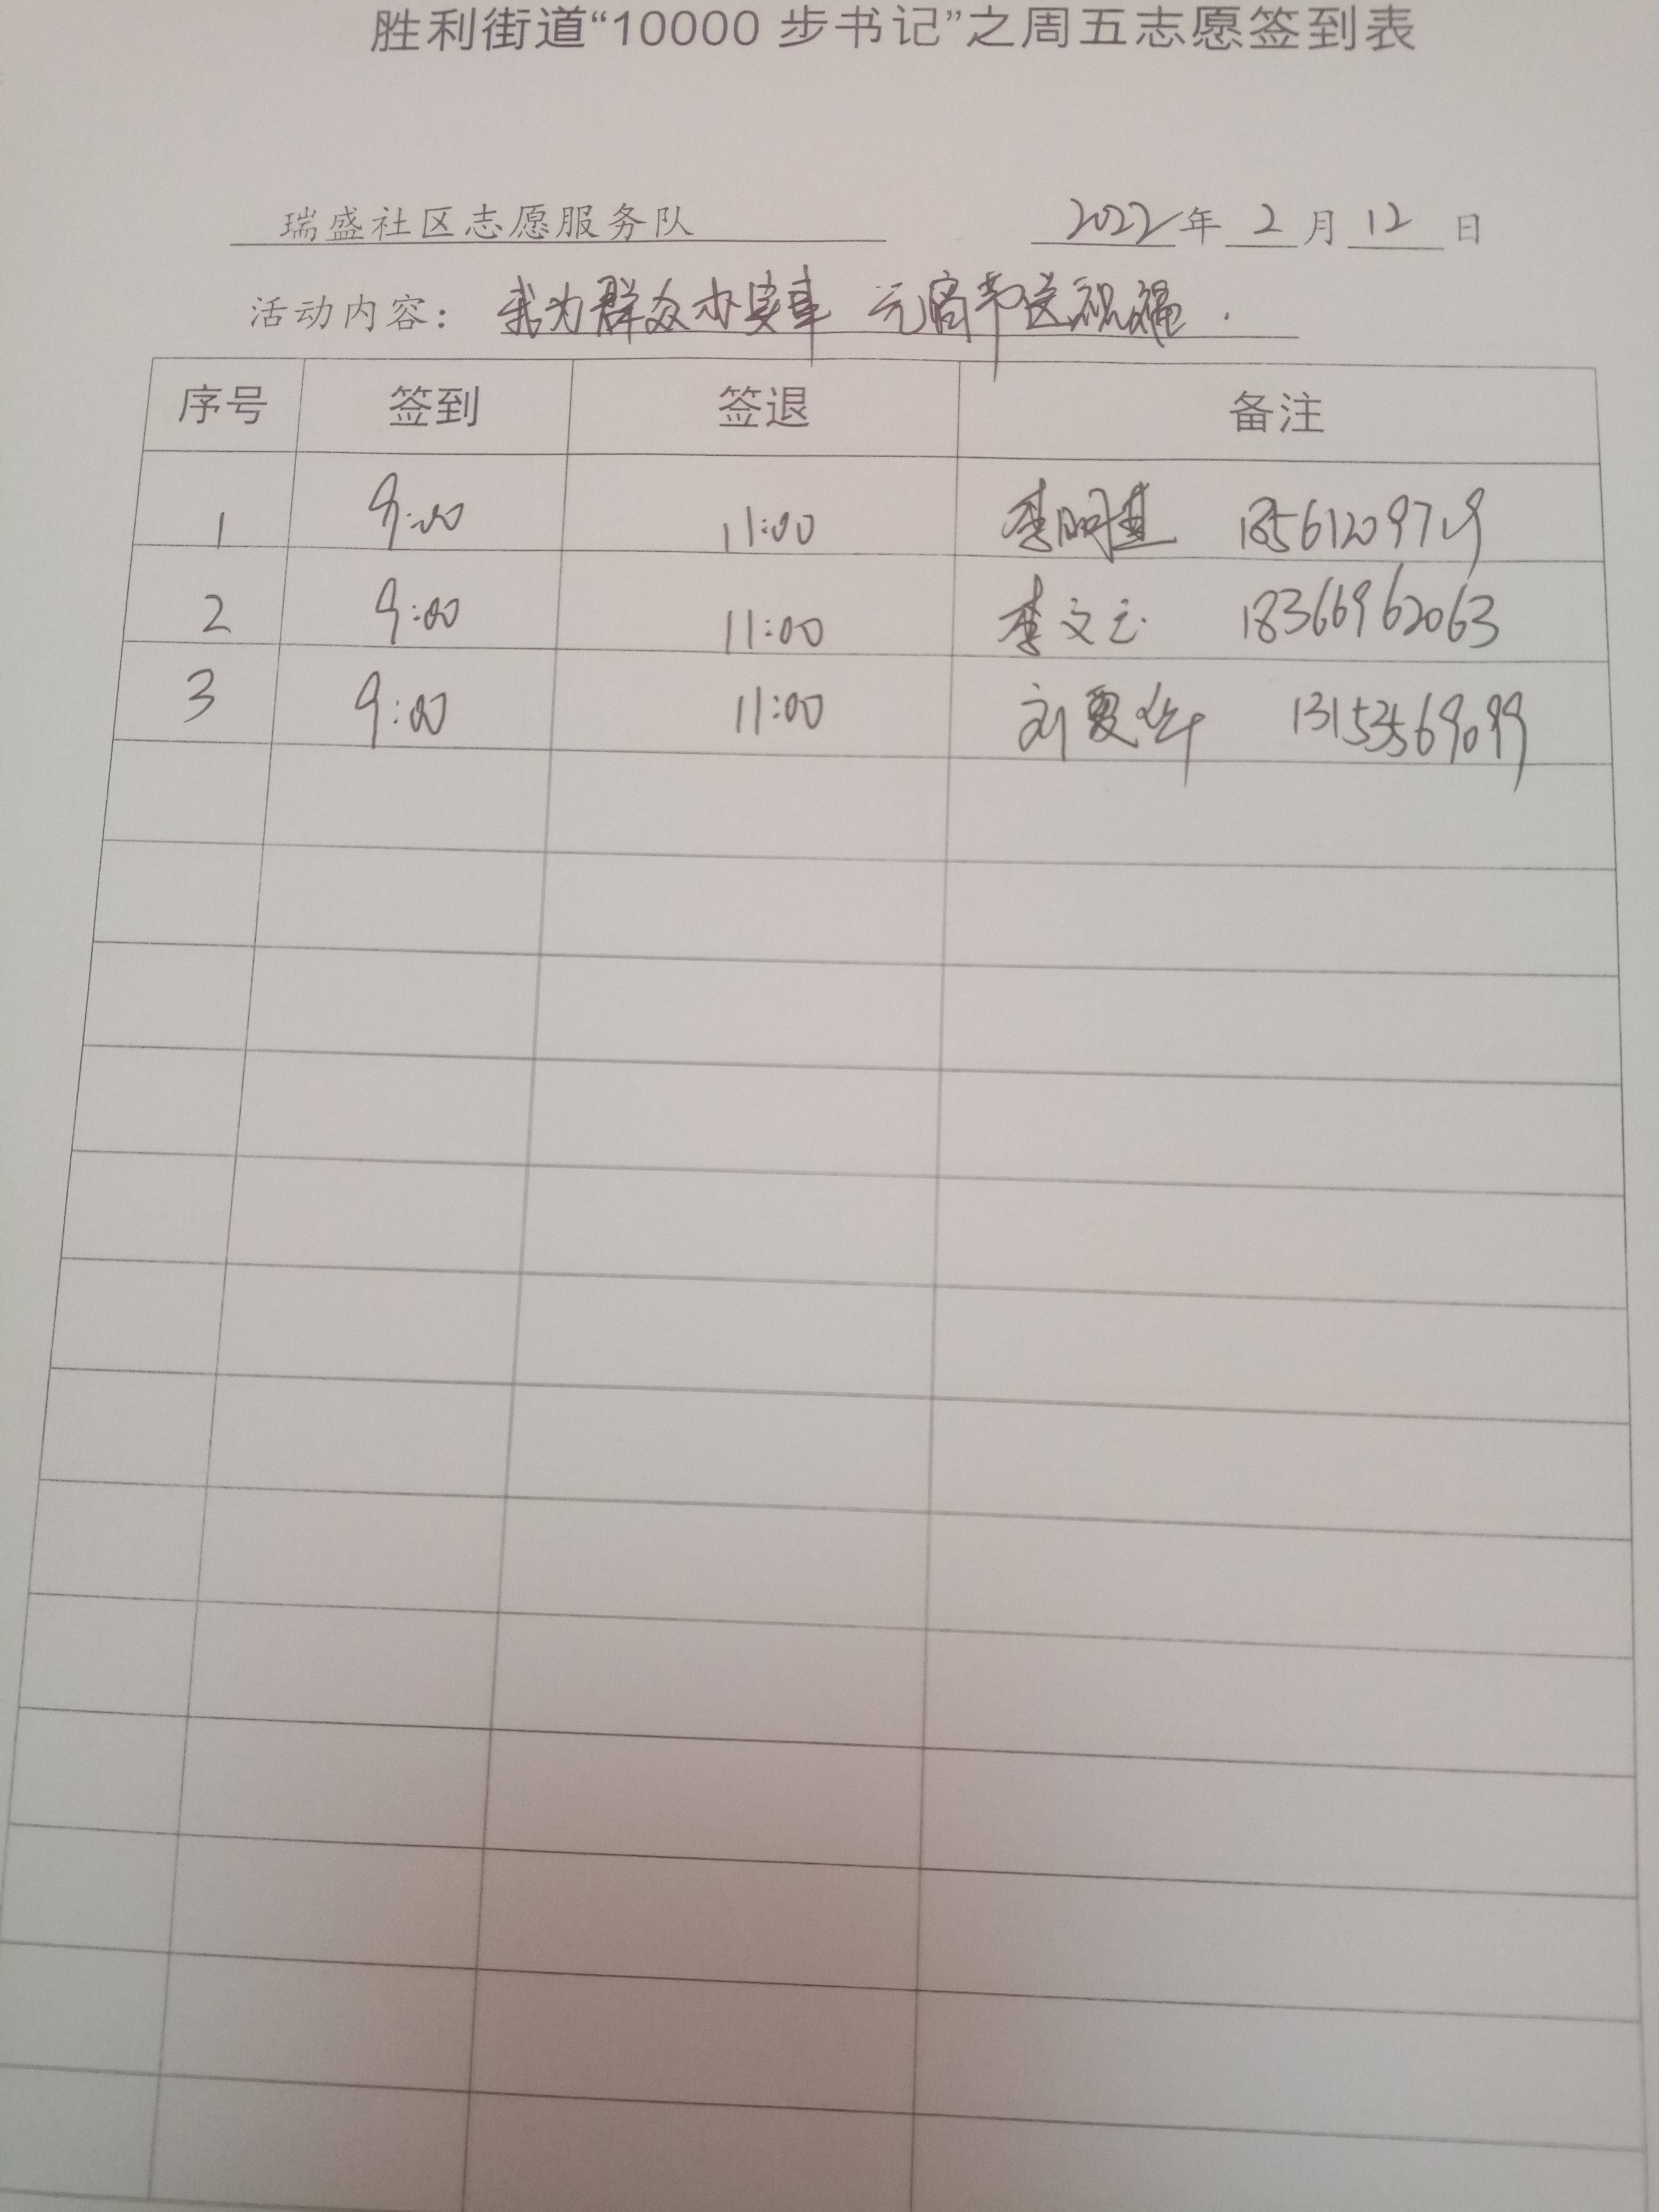 胜利街道“10000 步书记”之周五志愿签到表
瑞盛社区志愿服务队 2022年 2 月 12 日
活动内容：我为群众办实事 元宵节送祝福.
序号 签到 签退 备注
1 9:00 11:00 李明 18561209719
2 9:00 11:00 李文 18366962063
3 9:00 11:00 刘夏华